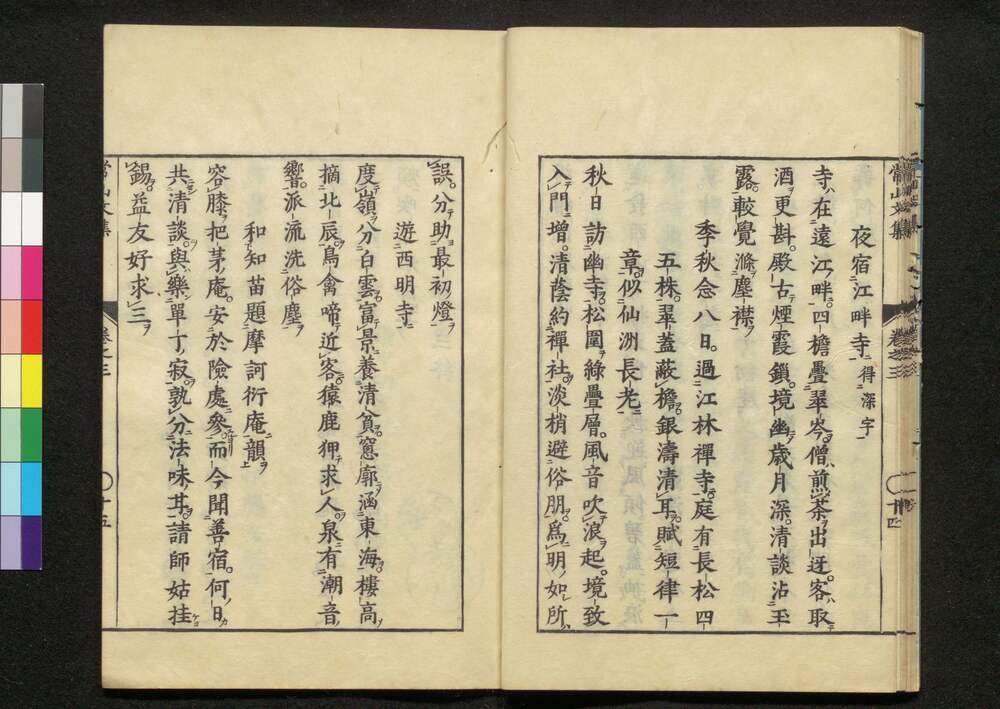 常山文集
卷之三
十四
夜宿江畔寺得深字
寺在遠江畔四檐疊翠岑僧煎茶出迓客取
酒更斟殿古煙霞鎖境幽歲月深清談沾玉
露較覺滌塵襟
季秋念八日過江林禪寺庭有長松四
五株翠蓋蔽檐銀濤清耳賦短律一
章似仙洲長老
秋日訪幽寺松圍綠疊層風音吹浪起境致
入門增清蔭約禪社淡梢避俗朋爲明如所
誤分助最初燈
遊西明寺
度嶺分白雲富景養清貧窻廓涵東海樓高
摘北辰鳥禽啼近客猿鹿狎求人泉有潮音
響派流洗俗塵
和知苗題摩訶衍庵韻
容膝把茅庵安於險處參而今聞善宿何日
共清談與樂單丁寂孰分法味甘請師姑挂
錫益友好求三
常山文集
卷之三
十五